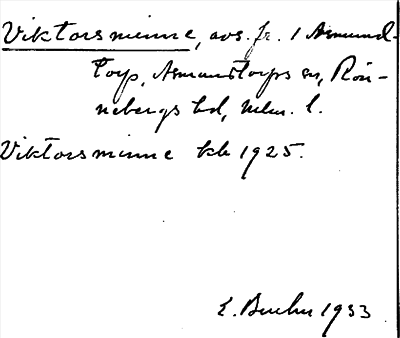 Viktorsminne, avs. fr. 1 Asmund-
torp, Asmundtorps sn, Rön-
nebergs hd, Mlm. l.
Viktorsminne kb 1925.
E. 1933